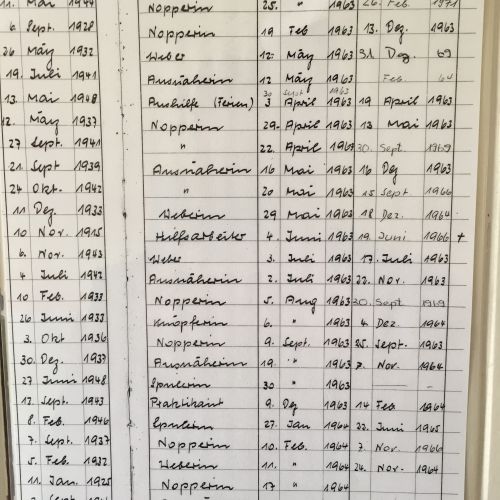 11. Mai 1944 Nopperin 25. " 1963 26. Feb. 1971
6 Sept. 1928 Nopperin 19 Feb 1963 13. Dez. 1963
26 März 1932 Weber 12. März 1963 31. Dez. 69
19. Juli 1941 Ausnäherin 12 März 1963 Feb. 64
30 Sept 1963
13. Mai 1948 Aushilfe (Ferien) 3 April 1963 19 April 1963
12. März 1937 Nopperin 29. April 1963 13 Mai 1963
27 Sept. 1941 " 22. April 1963 30. Sept. 1969
21. Sept 1939 Ausnäherin 16 Mai 1963 16 Dez 1963
24 Okt. 1942 " 20 Mai 1963 15 Sept 1966
11 Dez. 1933 Weberin 29 Mai 1963 18 Dez. 1964
10 Nov. 1915 Hilfsarbeiter 4. Juni 1963 19 Juni 1966 +
6. Nov. 1943 Weber 3. Juli 1963 17. Juli 1963
4 Juli 1942 Ausnäherin 2. Juli 1963 22. Nov. 1963
10 Feb. 1933 Nopperin 5. Aug 1963 30. Sept 1969
26 Juni 1933 Knöpferin 6. " 1963 4. Dez. 1964
3. Okt 1936 Nopperin 9. Sept. 1963 25. Sept. 1963
30. Dez. 1937 Ausnäherin 19. " 1963 7. Nov. 1964
27 Juni 1948 Spulerin 30 " 1963 — -
12. Sept 1943 Praktikant 9. Dez 1963 14 Feb 1964
8. Feb. 1946 Spulerin 27. Jan 1964 22. Juni 1965
7. Sept. 1937 Nopperin 10. Feb. 1964 7. Nov 1966
5. Feb. 1932 Weberin 11. " 1964 24. Nov. 1964
11. Jan. 1925 Nopperin 17 " 1964